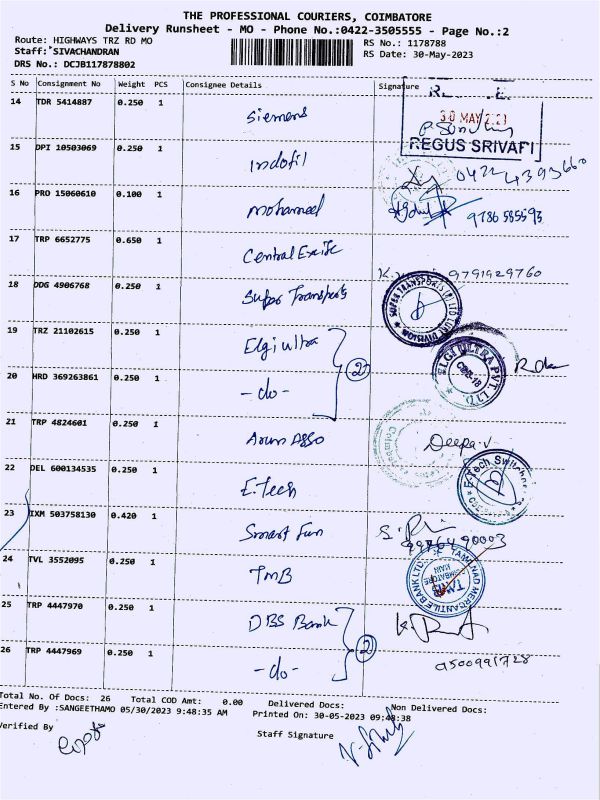 THE PROFESSIONAL COURIERS, COIMBATORE
Delivery Runsheet - MO - Phone No.:0422-3505555 - Page No.:2
Route: HIGHWAYS TRZ RD MO RS No.: 1178788
Staff: SIVACHANDRAN RS Date: 30-May-2023
DRS No.: DCJB117878802
S No Consignment No Weight PCS Consignee Details Signature
14 TDR 5414887 0.250 1 Siemens
30 MAY
REGUS SRIVARI
15 DPI 10503069 0.250 1 Indofil 0422 4393660
16 PRO 15060610 0.100 1 Mohameed 9786585593
17 TRP 6652775 0.650 1 Central Excise 9791929760
18 DDG 4906768 0.250 1 Super Transports
19 TRZ 21102615 0.250 1 Elgi ultra
2
ELGI ULTRA PVT. LTD.
20 HRD 369263861 0.250 1 -do-
21 TRP 4824601 0.250 1 Arun Asso Deepa.v
22 DEL 600134535 0.250 1 E.Tech
E-Tech Switch
23 IXM 503758130 0.420 1 Smart Fun
9976490003
24 TVL 3552095 0.250 1 TMB
TAMILNAD MERCANTILE BANK LTD.
TMB
COIMBATORE
MAIN
25 TRP 4447970 0.250 1 DBS Bank
2
26 TRP 4447969 0.250 1 -do- 9500991728
Total No. Of Docs: 26 Total COD Amt: 0.00 Delivered Docs: Non Delivered Docs:
Entered By :SANGEETHAMO 05/30/2023 9:48:35 AM Printed On: 30-05-2023 09:48:38
Verified By Staff Signature